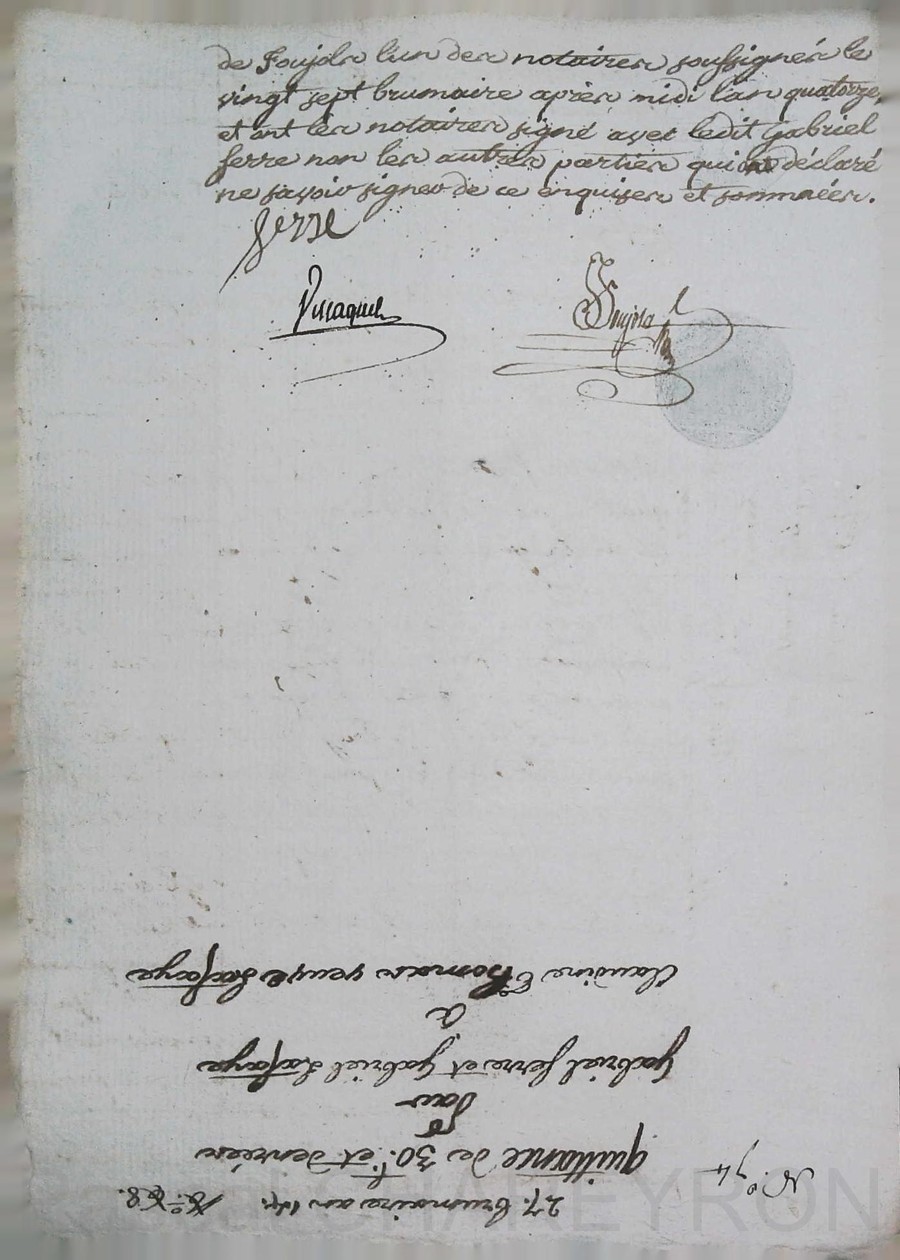 de Foujols l'un des notaires soussignés le
vingt sept brumaire après midi l'an quatorze,
et ont les notaires signé avec ledit Gabriel
ferre non les autres parties qui ont déclaré
ne savoir signer de ce enquises et sommées.
ferre
Foujols
27. brumaire an 14.
N.º 74
quittance de 30.f et denrées
Par
Gabriel ferre et Gabriel Lafaye
à
Claudine Thomas veuve Lafaye
CHAPEYRON